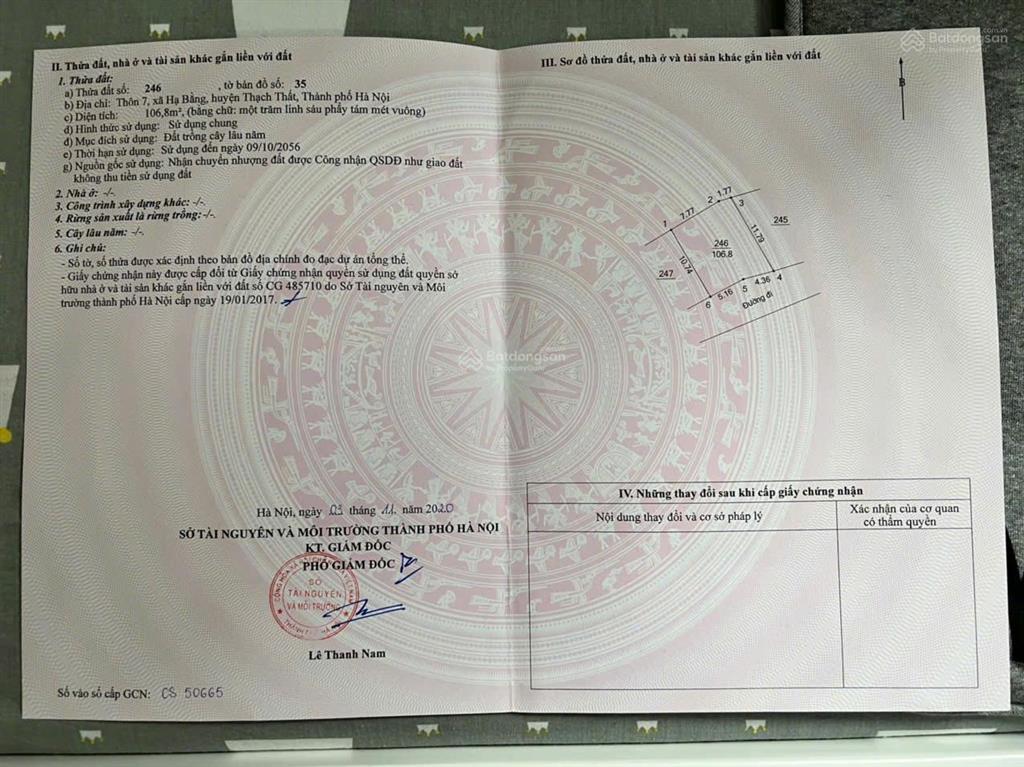 II. Thửa đất, nhà ở và tài sản khác gắn liền với đất
1. Thửa đất:
a) Thửa đất số: 246 , tờ bản đồ số: 35
b) Địa chỉ: Thôn 7, xã Hạ Bằng, huyện Thạch Thất, Thành phố Hà Nội
c) Diện tích: 106,8m², (bằng chữ: một trăm linh sáu phẩy tám mét vuông)
d) Hình thức sử dụng: Sử dụng chung
đ) Mục đích sử dụng: Đất trồng cây lâu năm
e) Thời hạn sử dụng: Sử dụng đến ngày 09/10/2056
g) Nguồn gốc sử dụng: Nhận chuyển nhượng đất được Công nhận QSDĐ như giao đất
không thu tiền sử dụng đất
2. Nhà ở: -/-
3. Công trình xây dựng khác: -/-.
4. Rừng sản xuất là rừng trồng:-/-.
5. Cây lâu năm: -/-
6. Ghi chú:
- Số tờ, số thửa được xác định theo bản đồ địa chính đo đạc dự án tổng thể.
- Giấy chứng nhận này được cấp đổi từ Giấy chứng nhận quyền sử dụng đất quyền sở
hữu nhà ở và tài sản khác gắn liền với đất số CG 485710 do Sở Tài nguyên và Môi
trường thành phố Hà Nội cấp ngày 19/01/2017.
Hà Nội, ngày 03 tháng 11 năm 2020
SỞ TÀI NGUYÊN VÀ MÔI TRƯỜNG THÀNH PHỐ HÀ NỘI
KT. GIÁM ĐỐC
PHÓ GIÁM ĐỐC
SỞ
TÀI NGUYÊN
VÀ MÔI TRƯỜNG
Lê Thanh Nam
Số vào sổ cấp GCN: CS 50665
III. Sơ đồ thửa đất, nhà ở và tài sản khác gắn liền với đất
B
1 7.77 2 1.77 3
245
11.79
246
106.8
247
10.74
6 5.16 5 4.36 4
Đường đi
IV. Những thay đổi sau khi cấp giấy chứng nhận
Nội dung thay đổi và cơ sở pháp lý
Xác nhận của cơ quan
có thẩm quyền
Batdongsan
by PropertyGuru
Batdongsan
by PropertyGuru